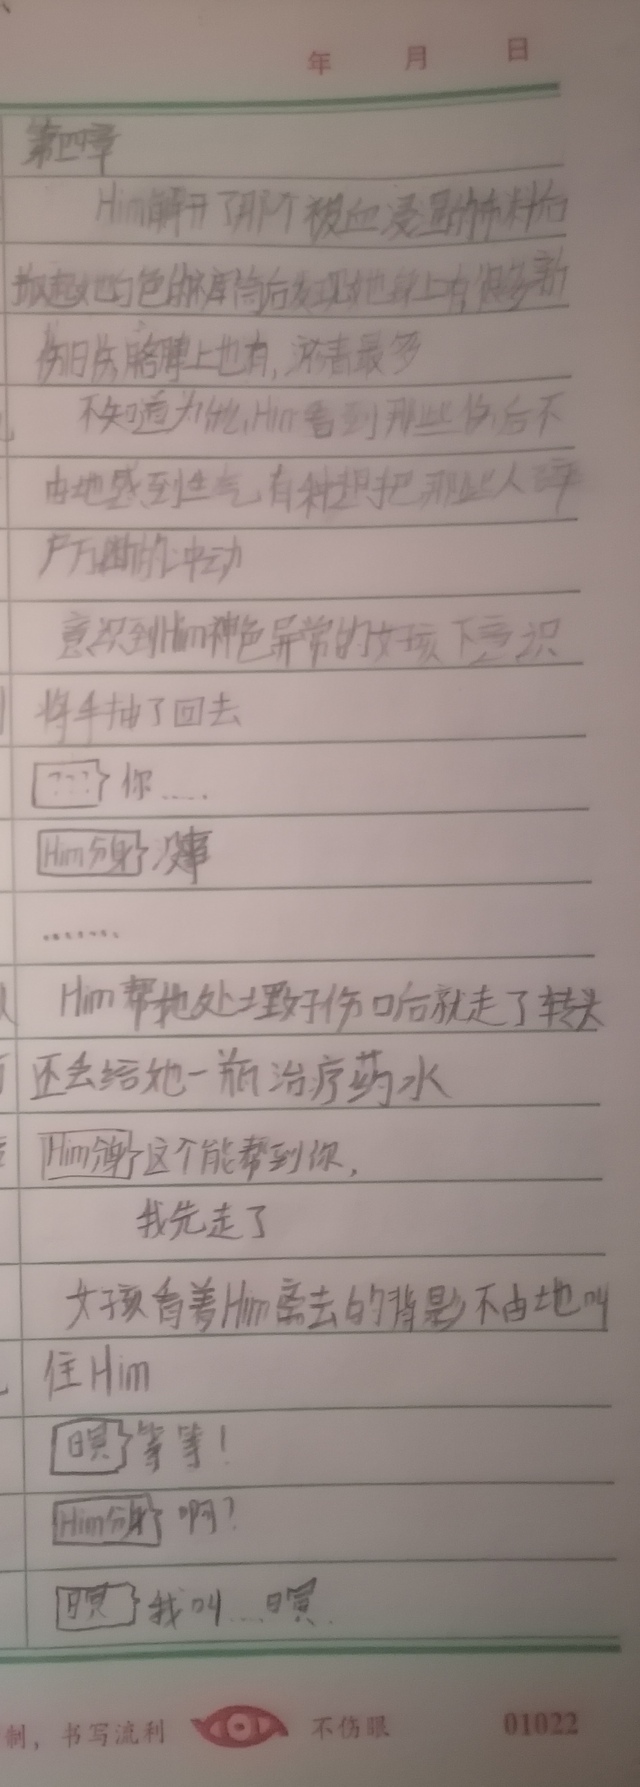 年 月 日
第四章
Him解开了那个被血浸湿的布料后
掀起她白色的裤筒后发现她身上有很多新
伤旧伤,胳膊上也有,淤青最多
不知道为什么,Him看到那些伤后不
由地感到生气,有种想把那些人碎
尸万断的冲动
意识到Him神色异常的女孩下意识
将手抽了回去
??? 你……
Him分身 没事
.......
Him帮她处理好伤口后就走了转头
还丢给她一瓶治疗药水
Him分身 这个能帮到你,
我先走了
女孩看着Him离去的背影不由地叫
住Him
暝 等等!
Him分身 啊?
暝 我叫……暝.
制,书写流利 不伤眼 01022